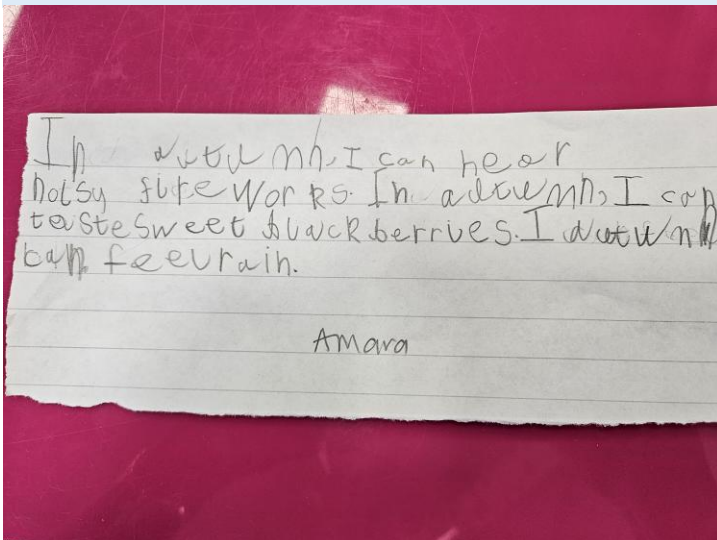 In autumn, I can hear
noisy fireworks. In autumn, I can
taste sweet blackberries. I autumn
can feel rain.
Amara